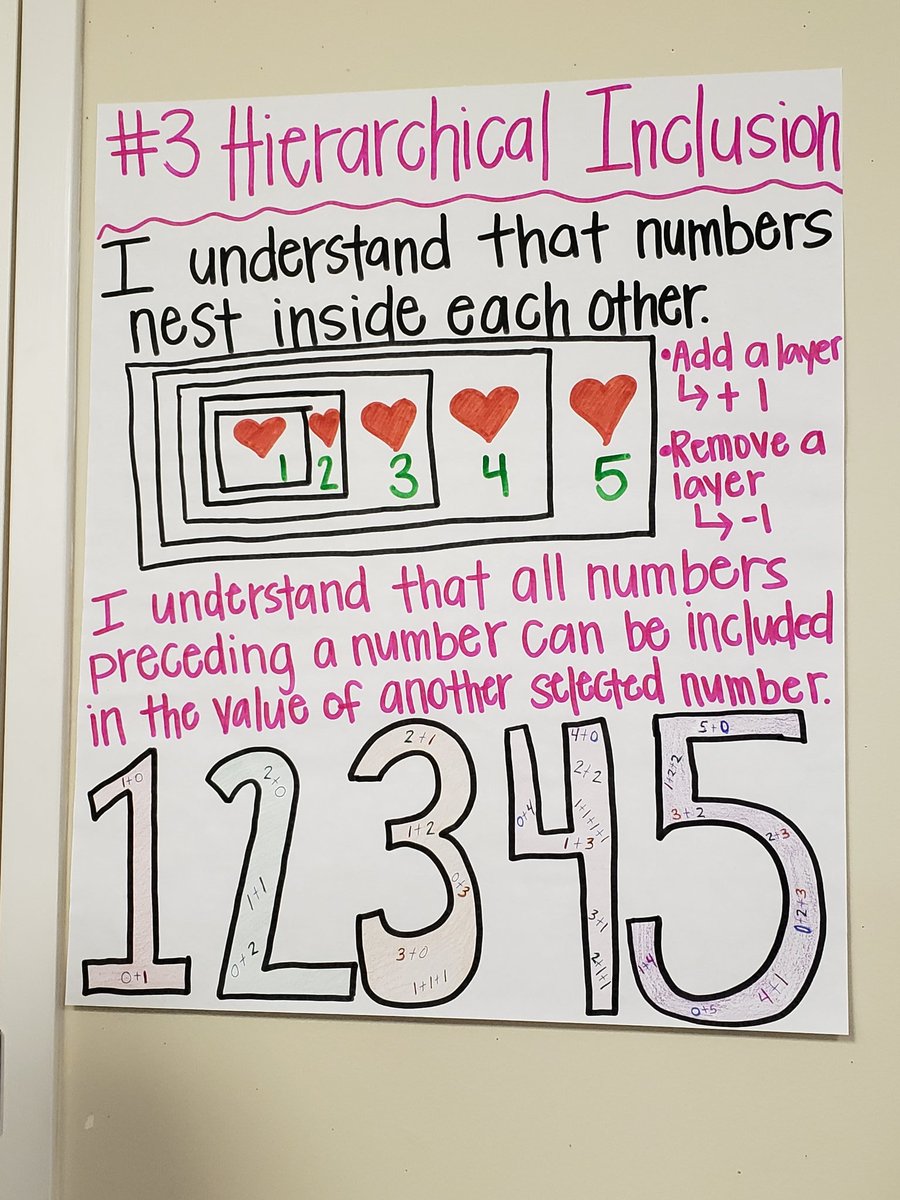 #3 Hierarchical Inclusion
I understand that numbers
nest inside each other.
1 2 3 4 5
• Add a layer
↳ + 1
• Remove a
layer
↳ -1
I understand that all numbers
preceding a number can be included
in the value of another selected number.
1
1+0
0+1
2
2+0
1+1
0+2
3
2+1
1+2
0+3
3+0
1+1+1
4
4+0
2+2
0+4
1+1+1+1
1+3
3+1
2+1+1
5
5+0
1+2+2
3+2
2+3
0+2+3
1+4
4+1
0+5